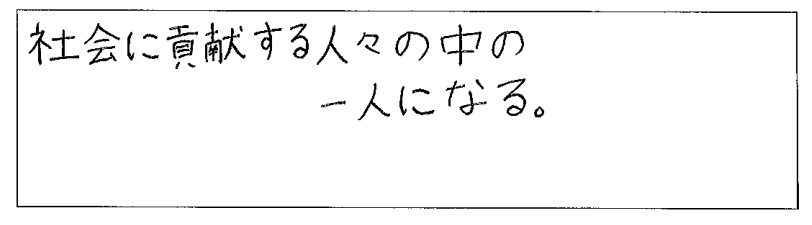 社会に貢献する人々の中の
一人になる。